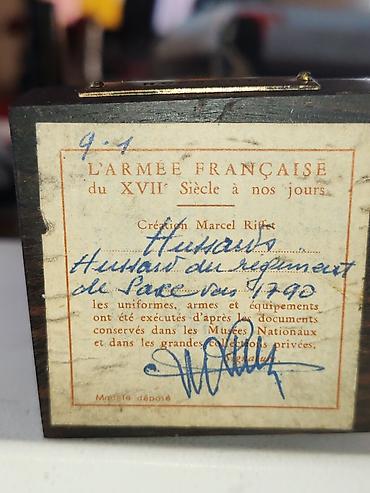 9.1
L'ARMÉE FRANÇAISE
du XVIIᵉ Siècle à nos jours
Création Marcel Riffet
Hussards.
Hussard du régiment
de Saxe vers 1790
les uniformes, armes et équipements
ont été exécutés d'après les documents
conservés dans les Musées Nationaux
et dans les grandes collections privées.
Signature
Modèle déposé